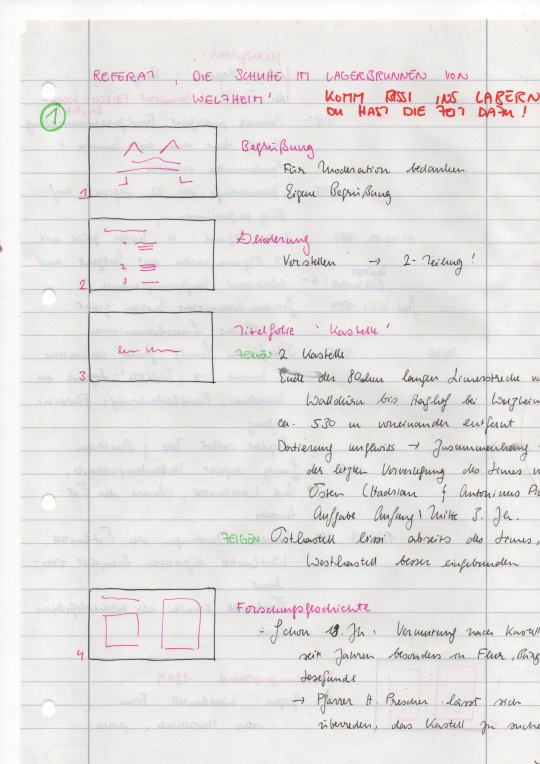 REFERAT, DIE SCHUHE IM LAGERBRUNNEN VON
WELZHEIM'
KOMM INS LABERN
DU HAST DIE ZEIT DAZU!
1
1
Begrüßung
Für Moderation bedanken
Eigene Begrüßung
2
Gliederung
Vorstellen → 2-Teilung!
1
2
3
3
Titelfolie 'Kastelle'
ZEIGEN 2 Kastelle
Ende der 80 km langen Limesstrecke
Walldürn bis Haghof bei Welzheim
ca. 530 m voneinander entfernt
Datierung ungewiss → Zusammenhang
der letzten Vorverlegung des Limes
Osten (Hadrian & Antoninus
Aufgabe Anfang/Mitte 3. Jh.
ZEIGEN Ostkastell liegt abseits des Limes,
Westkastell besser eingebunden
4
Forschungsgeschichte
- Schon 18. Jh. Vermutung nach
seit Jahren besonders in Flur
Lesefunde
→ Pfarrer H. Prescher lässt sich
überreden, das Kastell zu suchen